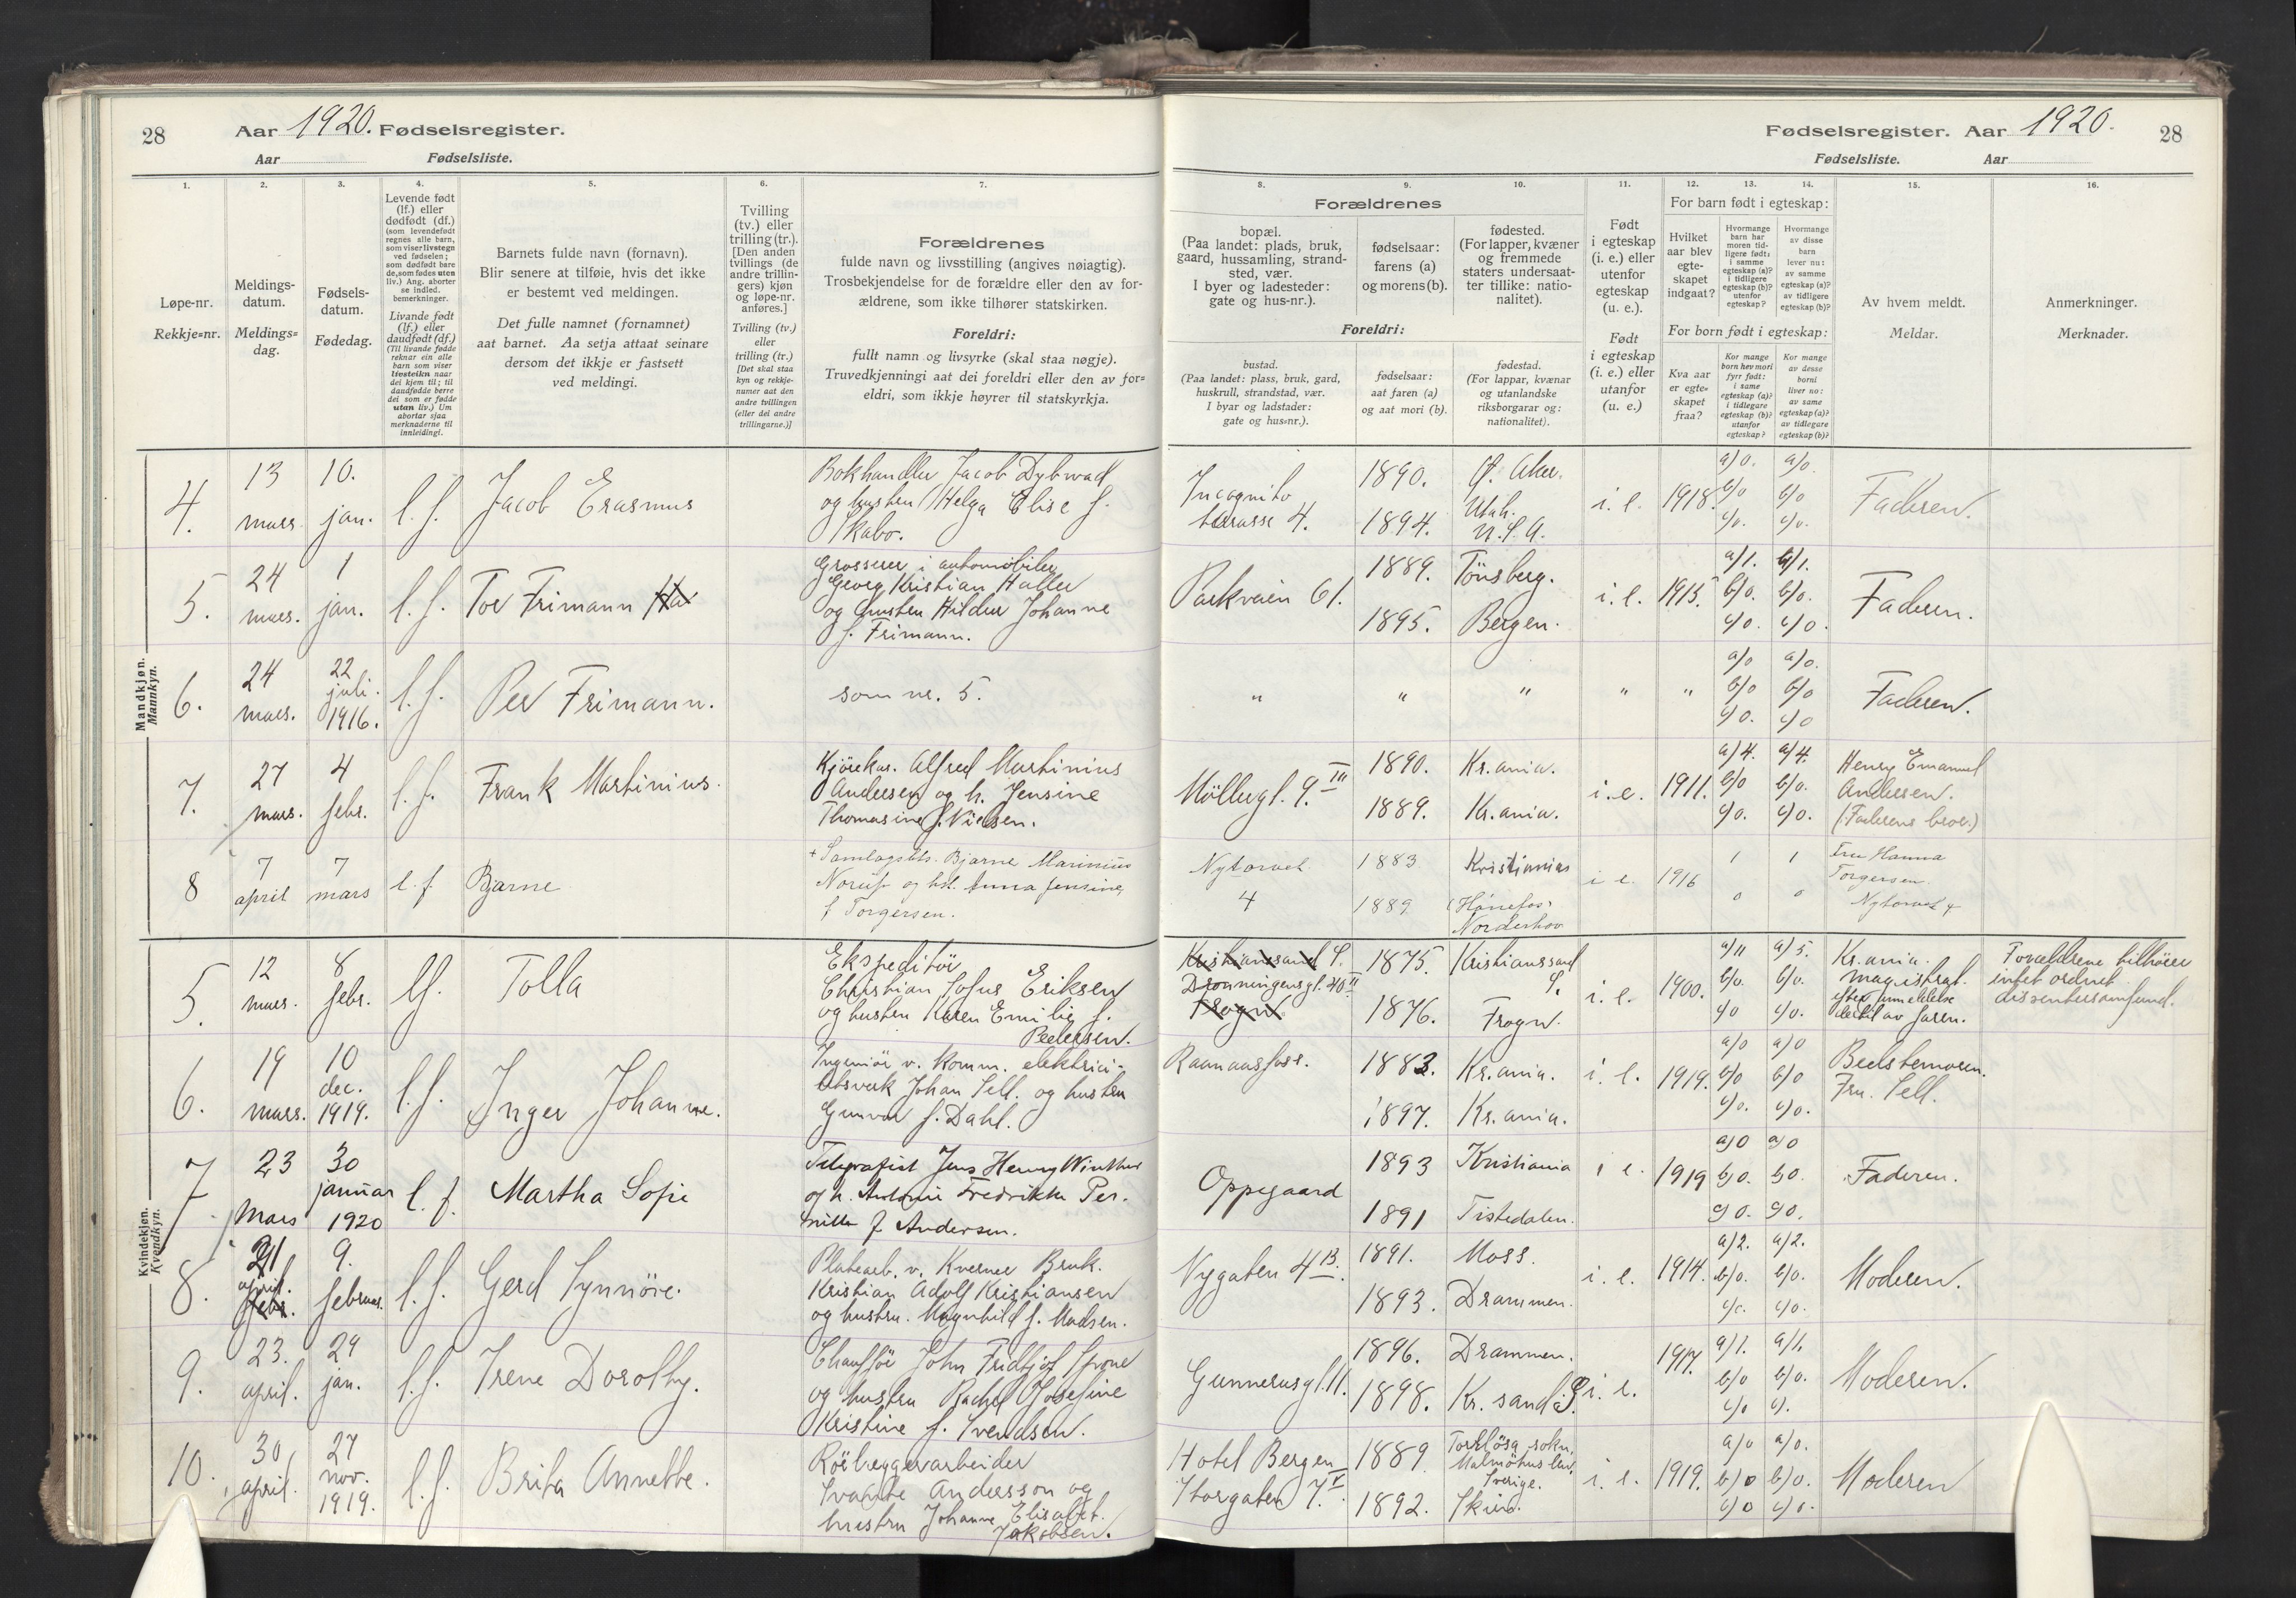 28
Aar 1920. Fødselsregister.
Aar
Fødselsliste.
1.
2.
3.
4.
5.
6.
7.
Løpe-nr.
Rekkje=nr.
Meldings-
datum.
Meldings=
dag.
Fødsels-
datum.
Fødedag.
Levende født
(lf.) eller
dødfødt (df.)
(som levendefødt
regnes alle barn,
som viser livstegn
ved fødselen;
som dødfødt bare
de, som fødes uten
liv.) Ang. aborter
se indled.
bemerkninger.
Livande født
(lf.) eller
daudfødt (df.)
(Til livande fødde
reknar ein alle
barn som viser
livsteikn naar
dei kjem til; til
daudfødde berre
dei som er fødde
utan liv.) Um
abortar sjaa
merknaderne til
innleidingi.
Barnets fulde navn (fornavn).
Blir senere at tilføie, hvis det ikke
er bestemt ved meldingen.
Det fulle namnet (fornamnet)
aat barnet. Aa setja attaat seinare
dersom det ikkje er fastsett
ved meldingi.
Tvilling
(tv.) eller
trilling (tr.).
[Den anden
tvillings (de
andre trillin-
gers) kjøn
og løpe-nr.
anføres.]
Tvilling (tv.)
eller
trilling (tr.)
[Det skal staa
kyn og rekkje-
numer aat den
andre tvillingen
(eller dei andre
trillingarne.)]
Forældrenes
fulde navn og livsstilling (angives nøiagtig).
Trosbekjendelse for de forældre eller den av for-
ældrene, som ikke tilhører statskirken.
Foreldri:
fullt namn og livsyrke (skal staa nøgje).
Truvedkjenningi aat dei foreldri eller den av for=
eldri, som ikkje høyrer til statskyrkja.
Mandkjøn.
Mannkyn.
4.
13
mars.
10.
jan.
l. f.
Jacob Erasmus
Bokhandler Jacob Dybwad
og hustru Helga Elise f.
Skabo.
5.
24
mars.
1
jan.
l. f.
Tor Frimann Ha
Grosserer i automobiler
Georg Kristian Haller
og hustru Hildur Johanne
f. Frimann.
6.
24
mars.
22
juli.
1916.
l. f.
Per Frimann.
som nr. 5.
7.
27
mars.
4
febr.
l. f.
Frank Martinius.
Kjørekar. Alfred Martinius
Andersen og h. Jensine
Thomasine f. Nielsen.
8
7
april
7
mars
l. f
Bjarne
Samlagsbest. Bjarne Marinius
Norup og hst. Anna Jensine
f Torgersen.
Kvindekjøn.
Kvendkyn.
5.
12
mars.
8
febr.
l.f.
Tolla
Ekspeditør
Christian Jofur Eriksen
og hustru Karen Emilie f.
Pedersen.
6.
19
mars.
10
dec.
1919.
l. f.
Inger Johanne.
Ingeniør v. Komm. elektrici-
tetsverk Johan Sell. og hustru
Gunvor f. Dahl.
7
23
Mars
30
januar
1920
l. f.
Martha Sofie
Telegrafist Jens Henry Winther
og h. Antonie Fredrikke Per-
nille f Andersen.
8.
21
april.
febr.
9.
februar.
l. f.
Gerd Synnöve.
Platearb. v. Kværner Bruk.
Kristian Adolf Kristiansen
og hustru. Magnhild f. Madsen.
9.
23.
april.
29
jan.
l. f.
Irene Dorothy.
Chauffør John Fridtjof
og hustru Rachel Josefine
Kristine f. Svendsen.
10.
30
april.
27
nov.
1919.
l. f.
Brita Annette.
Rörlæggerarbeider
Svante Andersson og
hustru Johanne Elisabet.
Jakobsen.
Fødselsregister. Aar 1920.
28
Fødselsliste.
Aar
8.
9.
10.
11.
12.
13.
14.
15.
16.
Forældrenes
bopæl.
(Paa landet: plads, bruk,
gaard, hussamling, strand-
sted, vær.
I byer og ladesteder:
gate og hus-nr.).
fødselsaar:
farens (a)
og morens (b).
fødested.
(For lapper, kvæner
og fremmede
staters undersaat-
ter tillike: natio-
nalitet).
Foreldri:
bustad.
(Paa landet: plass, bruk, gard,
huskrull, strandstad, vær.
I byar og ladstader:
gate og hus=nr.).
fødselsaar:
aat faren (a)
og aat mori (b).
fødestad.
(For lappar, kvænar
og utanlandske
riksborgarar og:
nationalitet).
Født
i egteskap
(i. e.) eller
utenfor
egteskap
(u. e.).
Født
i egteskap
(i. e.) eller
utanfor
(u. e.)
For barn født i egteskap:
Hvilket
aar blev
egte-
skapet
indgaat?
Hvormange
barn har
moren tid-
ligere født:
i samme
egteskap (a)?
i tidligere
egteskap (b)?
utenfor
egteskap?
Hvormange
av disse
barn
lever nu:
av samme
egteskap (a)?
av tidligere
egteskap (b)?
For born født i egteskap:
Kva aar
er egte=
skapet
fraa?
Kor mange
born hev mori
fyrr født:
i same
egteskap (a)?
i tidlegare
egteskap (b)?
utanfor
egteskap?
Kor mange
av desse
borni
liver no:
av same
egteskap (a)?
av tidlegare
egteskap (b)?
Av hvem meldt.
Meldar.
Anmerkninger.
Merknader.
Incognito
terrasse 4.
1890.
1894.
Ø. Aker.
Utah.
U. S. A.
i. e.
1918.
a/0.
b/0
c/0.
a/0.
b/0
c/0.
Faderen.
Parkveien 61.
1889.
1895.
Tönsberg.
Bergen.
i. e.
1915.
a/1.
b/0.
c/0.
a/1.
b/0.
c/0.
Faderen.
"
"
"
"
"
a/0
b/0
c/0.
a/0.
b/0
c/0
Faderen.
Möllergt. 9. III
1890.
1889.
Kr.ania.
Kr.ania.
i. e.
1911.
a/4.
b/0
c/0.
a/4.
b/0.
c/0.
Henry Emanuel
Andersen.
(Faderens bror.)
Nytorvet
4
1883
1889
Kristiania
(Hönefos)
Norderhov
i e.
1916
1
0
1
0
Fru Hanna
Torgersen.
Nytorvet 4
Kristiansand S.
Dronningensgt. 40 II
Frogn
1875.
1876.
Kristianssand
S.
Frogn.
i. e.
1900.
a/11
b/0.
c/0
a/5.
b/0.
c/0.
Kr.ania.
magistrat.
efter anmeldelse
dertil av faren.
Forældrene tilhører
intet ordnet
dissentersamfund.
Raanaasfoss.
1883.
1897.
Kr.ania.
Kr.ania.
i. e.
1919.
a/0
b/0
c/0.
a/0
b/0
c/0.
Bedstemoren.
Fru. Sell.
Oppegaard
1893
1891
Kristiania
Tistedalen.
i e.
1919
a) 0
b) 0.
c) 0.
a) 0
b) 0.
c) 0.
Faderen.
Nygaten 4 B.
1891.
1893.
Moss.
Drammen.
i. e.
1914.
a/2.
b/0.
c/0.
a/2.
b/0.
c/0.
Moderen.
Gunnerusgt. 11.
1896.
1898.
Drammen.
Kr. sand S.
i. e.
1917.
a/1.
b/0
c/0
a/1.
b/0.
c/.
Moderen.
Hotel Bergen
Storgaten 7. V
1889
1892.
Torrlösa sokn,
Malmöhus län,
Sverige.
Skien.
i. e.
1919.
a/0
b/0
c/0
a/0.
b/0.
c/0.
Moderen